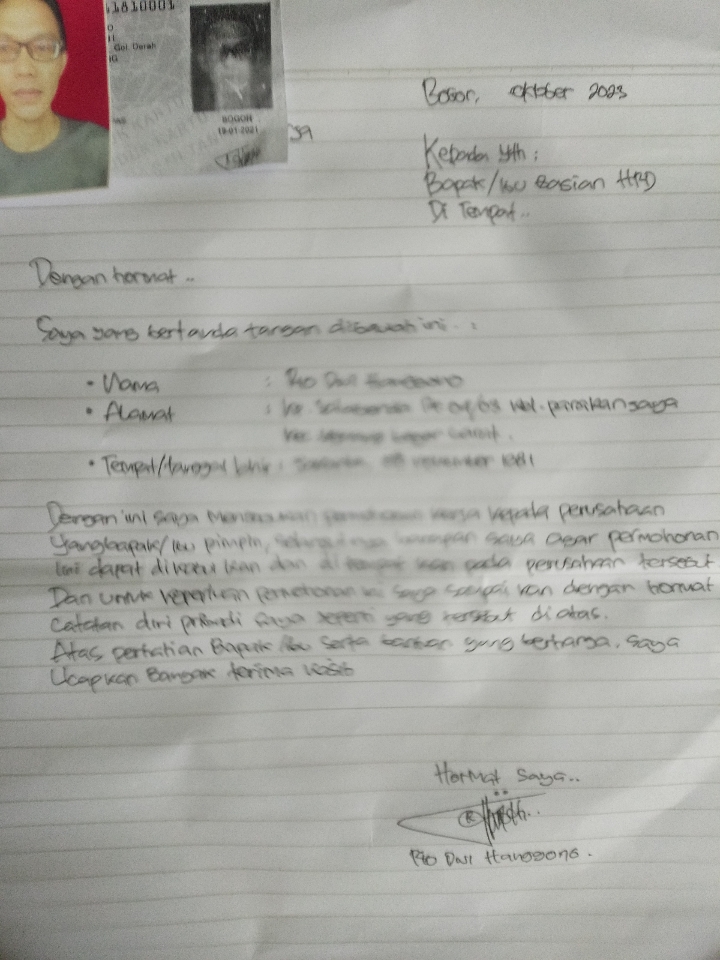 11810001
Gol. Darah
BOGOR
19-01-2021
Bogor, oktober 2023
Kepada Yth :
Bapak/ibu Bagian HRD
Di Tempat..
Dengan hormat ..
Saya yang bertanda tangan dibawah ini . . :
• Nama : Rio Dwi
• Alamat : Kp. Kel. parakansaga
Kec.
• Tempat/tanggal lahir : november 1981
Dengan ini saya permohonan kerja kepada perusahaan
yang bapak/ibu pimpin, harapan saya agar permohonan
ini dapat dan di kan pada perusahaan tersebut.
Dan untuk permohonan ini saya sampai kan dengan hormat
Catatan diri pribadi saya seperti yang tersebut di atas.
Atas perhatian Bapak/ibu serta yang berharga, saya
Ucapkan Banyak terima kasih
Hormat saya..
Rio Dwi